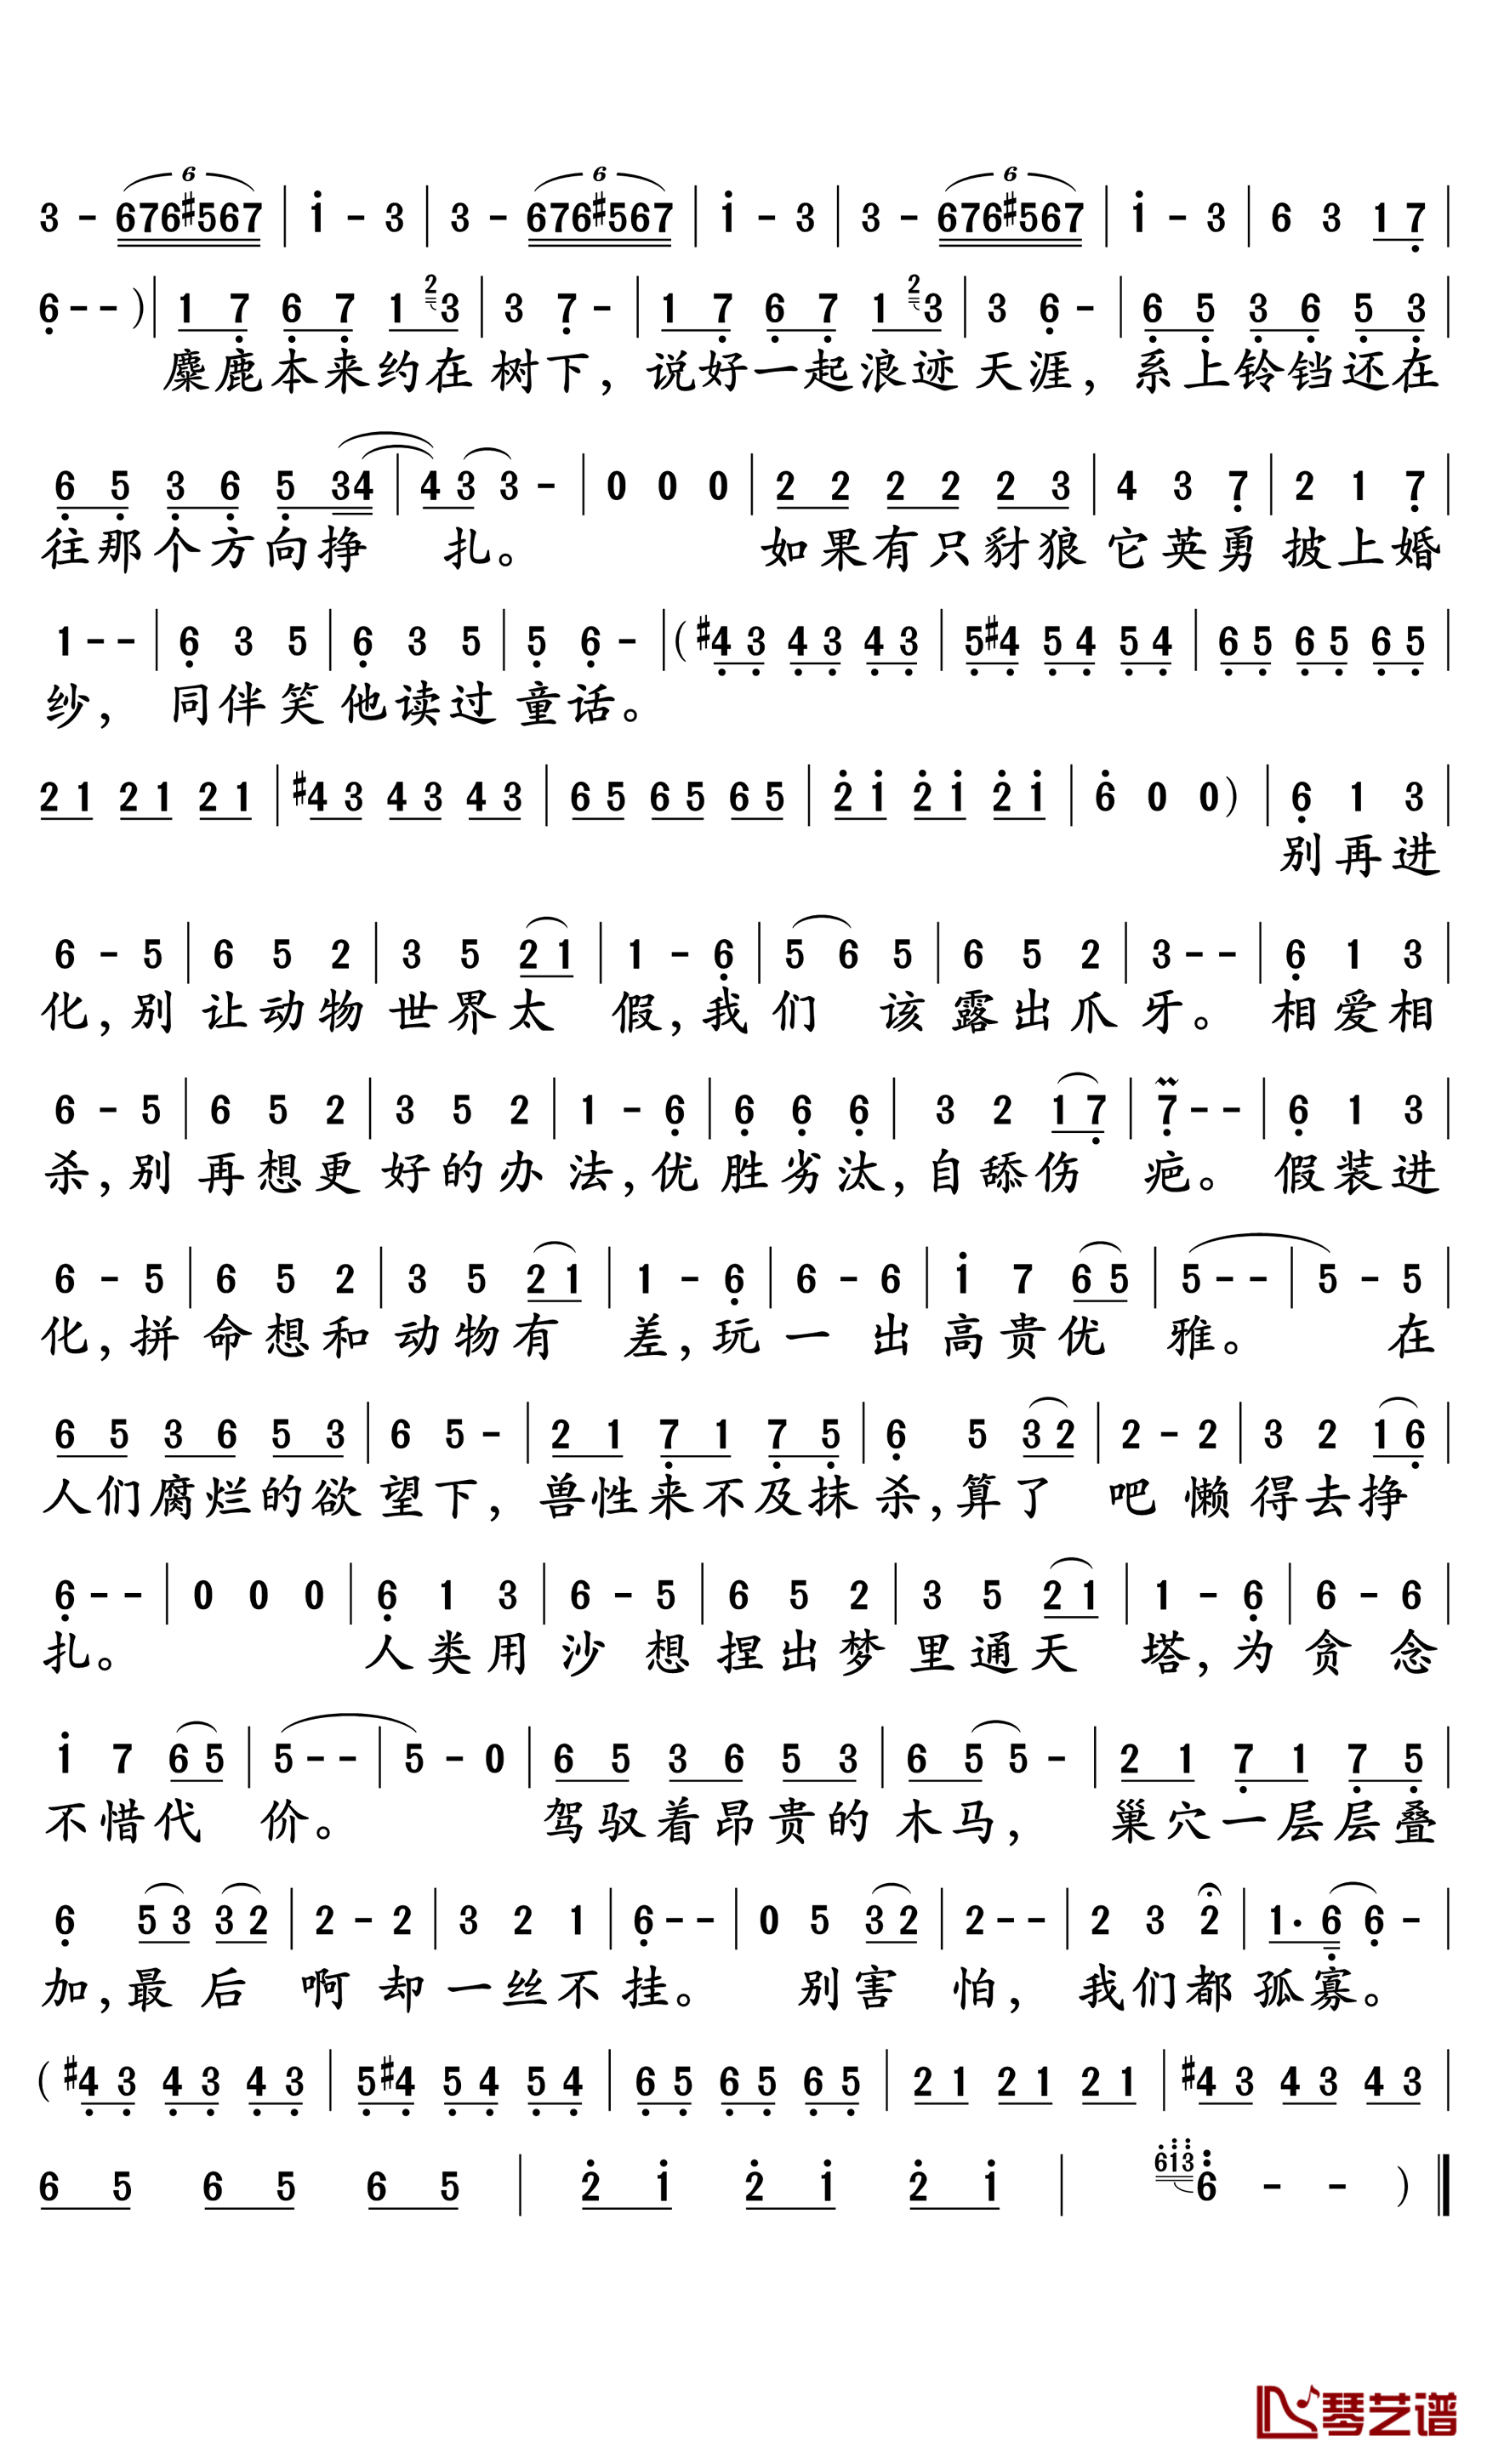 3 - 676#567 | i - 3 | 3 - 676#567 | i - 3 | 3 - 676#567 | i - 3 | 6 3 1 7 |
6 - - ) | 1 7 6 7 1 2 3 | 3 7 - | 1 7 6 7 1 2 3 | 3 6 - | 6 5 3 6 5 3 |
麋鹿本来约在树下，说好一起浪迹天涯，系上铃铛还在
6 5 3 6 5 34 | 4 3 3 - | 0 0 0 | 2 2 2 2 2 3 | 4 3 7 | 2 1 7 |
往那个方向挣 扎。 如果有只豺狼它英勇披上婚
1 - - | 6 3 5 | 6 3 5 | 5 6 - | ( #4 3 4 3 4 3 | 5 #4 5 4 5 4 | 6 5 6 5 6 5 |
纱，同伴笑他读过童话。
2 1 2 1 2 1 | #4 3 4 3 4 3 | 6 5 6 5 6 5 | 2 i 2 i 2 i | 6 0 0 ) | 6 1 3 |
别再进
6 - 5 | 6 5 2 | 3 5 2 1 | 1 - 6 | 5 6 5 | 6 5 2 | 3 - - | 6 1 3 |
化，别让动物世界太 假，我们 该露出爪牙。相爱相
6 - 5 | 6 5 2 | 3 5 2 | 1 - 6 | 6 6 6 | 3 2 1 7 | 7 - - | 6 1 3 |
杀，别再想更好的办法，优胜劣汰，自舔伤 疤。假装进
6 - 5 | 6 5 2 | 3 5 2 1 | 1 - 6 | 6 - 6 | i 7 6 5 | 5 - - | 5 - 5 |
化，拼命想和动物有 差，玩一出高贵优 雅。 在
6 5 3 6 5 3 | 6 5 - | 2 1 7 1 7 5 | 6 5 3 2 | 2 - 2 | 3 2 1 6 |
人们腐烂的欲望下，兽性来不及抹杀，算了 吧懒得去挣
6 - - | 0 0 0 | 6 1 3 | 6 - 5 | 6 5 2 | 3 5 2 1 | 1 - 6 | 6 - 6 |
扎。 人类用沙想捏出梦里通天 塔，为贪念
i 7 6 5 | 5 - - | 5 - 0 | 6 5 3 6 5 3 | 6 5 5 - | 2 1 7 1 7 5 |
不惜代 价。 驾驭着昂贵的木马， 巢穴一层层叠
6 5 3 3 2 | 2 - 2 | 3 2 1 | 6 - - | 0 5 3 2 | 2 - - | 2 3 2 | 1· 6 6 - |
加，最后 啊却一丝不挂。 别害 怕， 我们都孤寡。
( #4 3 4 3 4 3 | 5 #4 5 4 5 4 | 6 5 6 5 6 5 | 2 1 2 1 2 1 | #4 3 4 3 4 3 |
6 5 6 5 6 5 | 2 i 2 i 2 i | 613 6 - - ) ||
琴艺谱